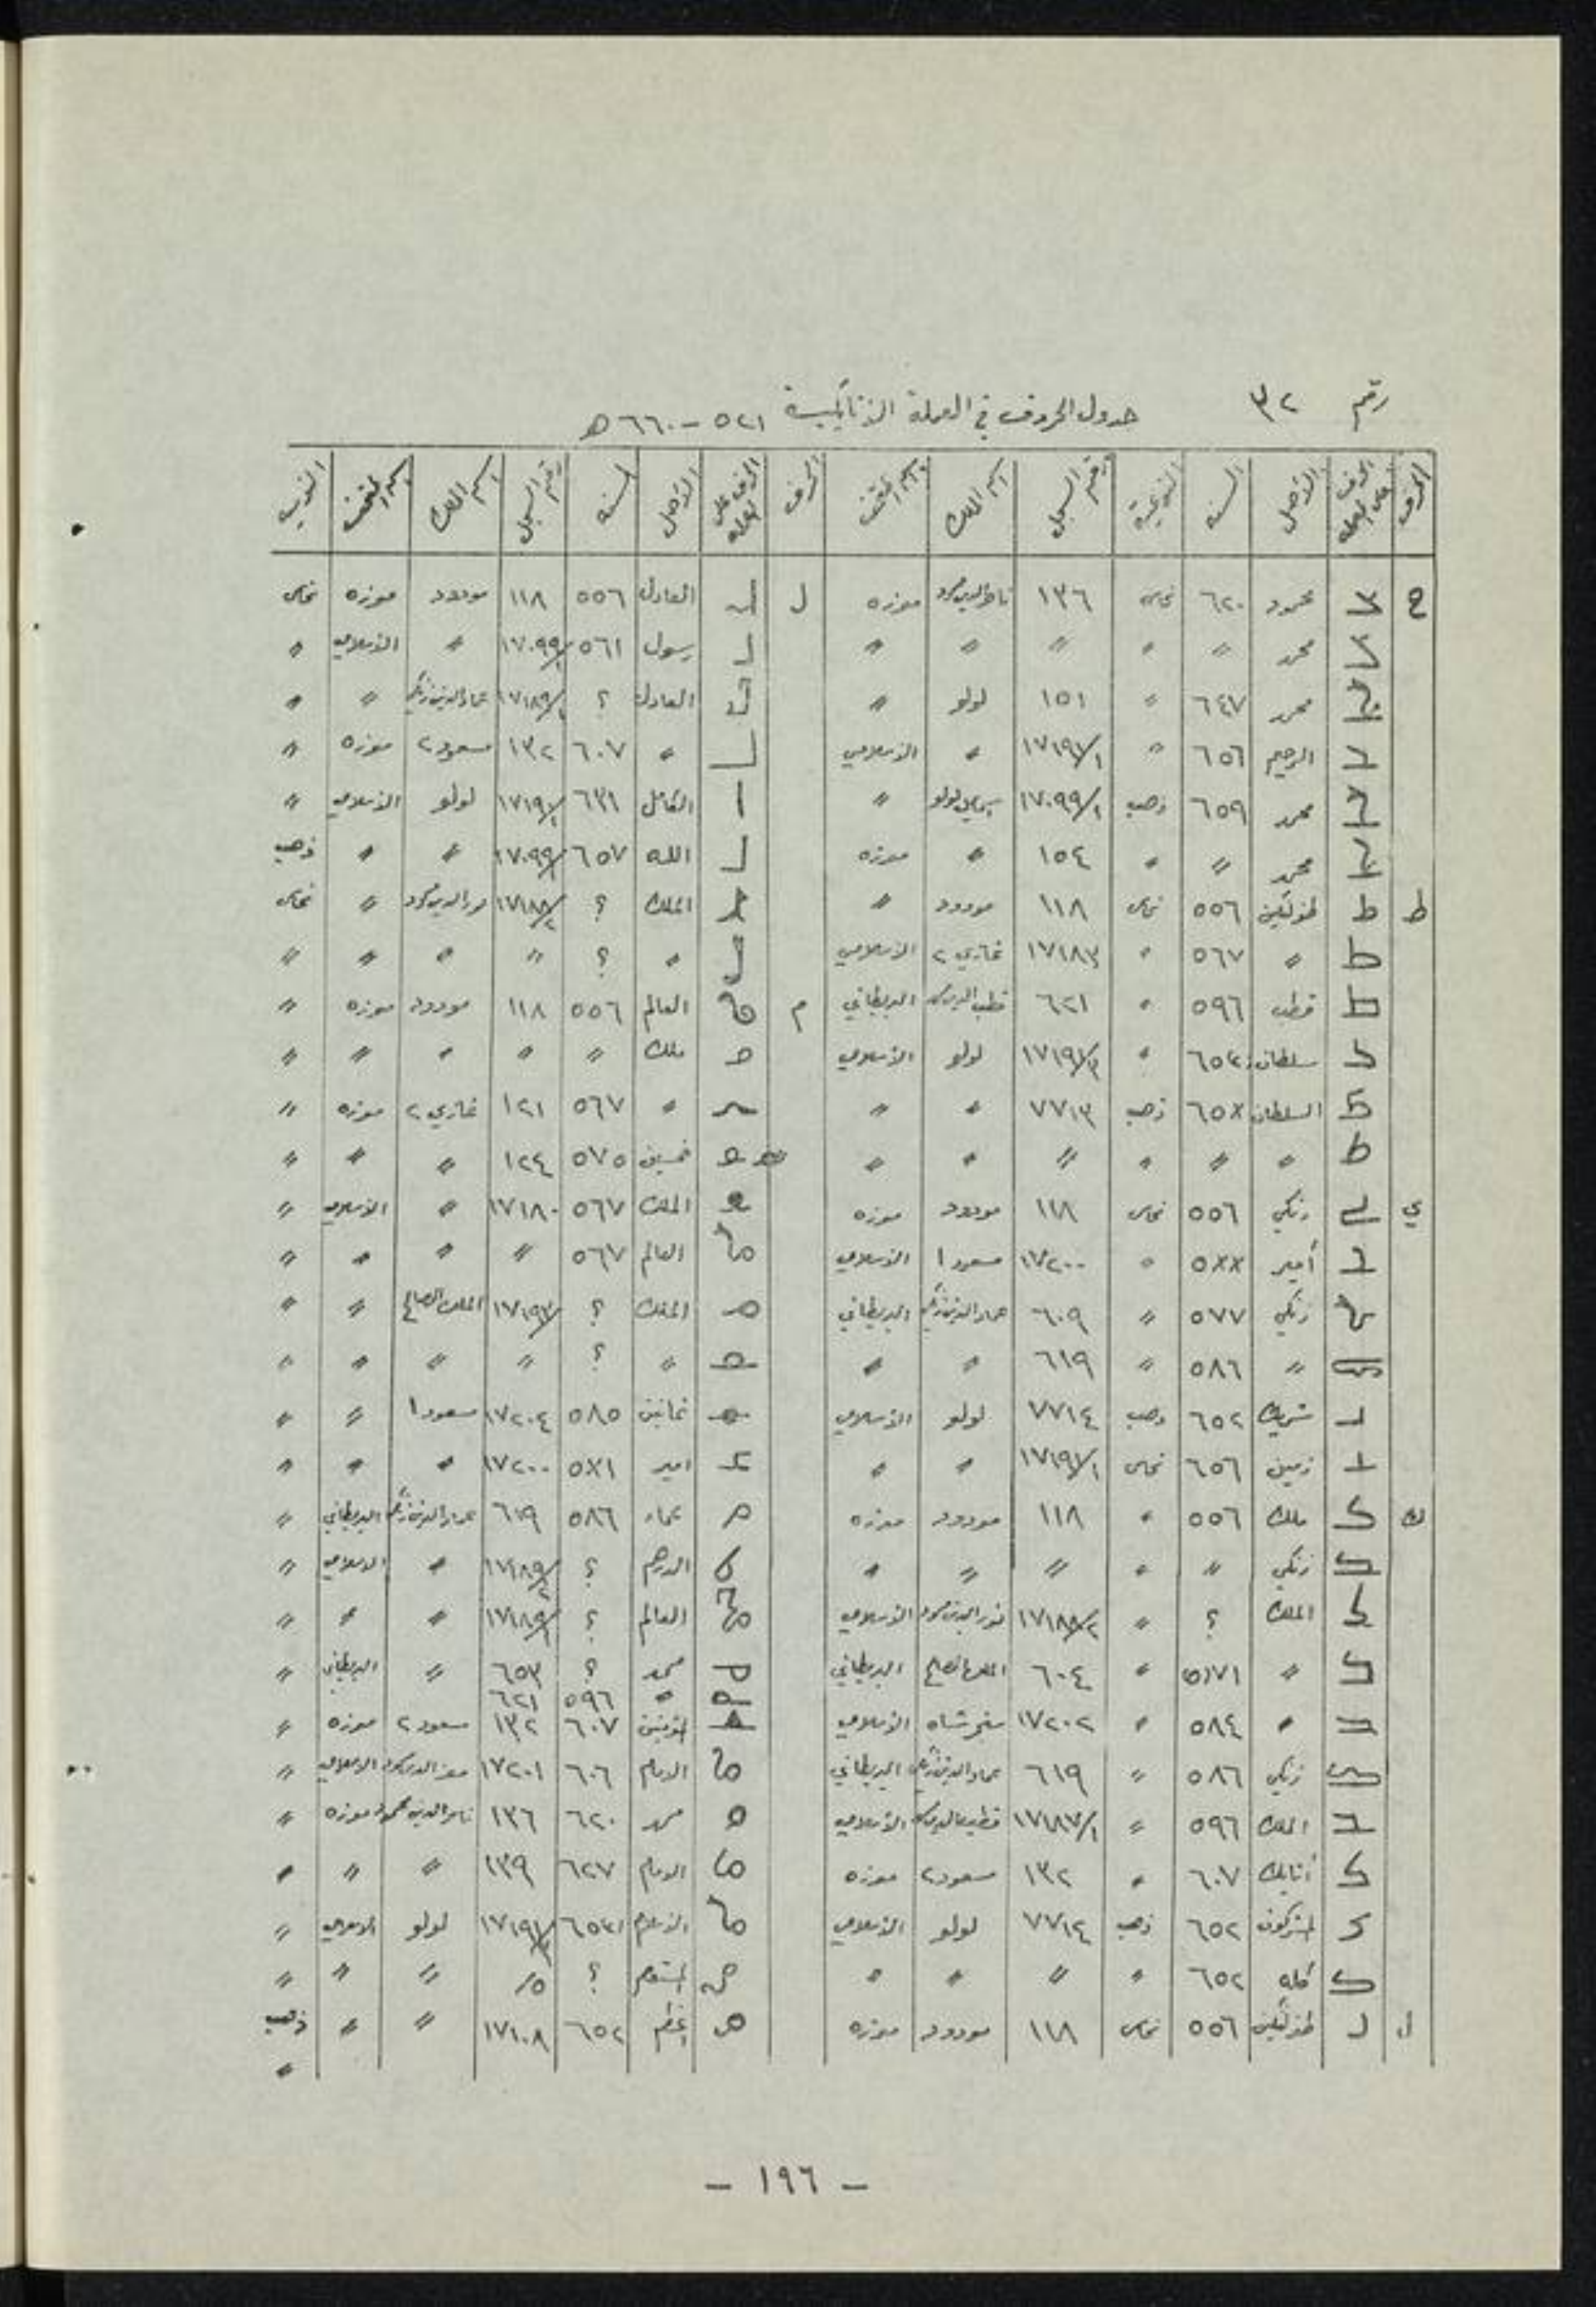 رقم ٣٢
جدول الحروف في العملة الأتابكية ٥٢١ - ٦٦٠ هـ
الحرف | الحرف على العملة | الأصل | السنه | النوعية | رقم السجل | اسم الملك | اسم المتحف | الحرف | الحرف على العمله | الأصل | السنه | رقم السجل | اسم الملك | اسم المتحف | النوعيه
ح | محمود | ٦٢٠ | نحاس | ١٣٦ | ناصرالدين محمود | موزه | ل | العادل | ٥٥٦ | ١١٨ | مودود | موزه | نحاس
محمد |〃 | 〃 | 〃 | 〃 | 〃 | رسول | ٥٦١ | ١٧٠٩٩/ | 〃 | الاسلامي | 〃
محمد | ٦٤٧ | 〃 | ١٥١ | لولو | 〃 | العادل | ؟ | ١٧١٨٩/١ | عمادالدين زنكي | 〃 | 〃
الرحيم | ٦٥٦ | 〃 | ١٧١٩١/١ | 〃 | الاسلامي | 〃 | ٦٠٧ | ١٣٢ | مسعود٢ | موزه | 〃
محمد | ٦٥٩ | ذهب | ١٧٠٩٩/١ | لولو | 〃 | الكامل | ٦٣١ | ١٧١٩١/ | لولو | الاسلامي | 〃
محمد | 〃 | 〃 | ١٥٤ | 〃 | موزه | الله | ٦٥٧ | ١٧٠٩٩/ | 〃 | 〃 | ذهب
ط | ط | طغرلتكين | ٥٥٦ | نحاس | ١١٨ | مودود | 〃 | الملك | ؟ | ١٧١٨٨/٢ | نورالدين محمود | 〃 | نحاس
〃 | ٥٦٧ | 〃 | ١٧١٨٣ | غازي ٢ | الاسلامي | 〃 | ؟ | 〃 | 〃 | 〃 | 〃
قطب | ٥٩٦ | 〃 | ٦٢١ | قطب الدين | البريطاني | م | العالم | ٥٥٦ | ١١٨ | مودود | موزه | 〃
سلطان | 〃 | ١٧١٩١/٣ | لولو | الاسلامي | ملك | 〃 | 〃 | 〃 | 〃 | 〃
السلطان | ٦٥x | ذهب | ٧٧١٣ | 〃 | 〃 | 〃 | ٥٦٧ | ١٢١ | غازي ٢ | موزه | 〃
〃 | 〃 | 〃 | 〃 | 〃 | 〃 | خمسين | ٥٧٥ | ١٢٤ | 〃 | 〃 | 〃
ي | زنكي | ٥٥٦ | نحاس | ١١٨ | مودود | موزه | الملك | ٥٦٧ | ١٧١٨٠ | 〃 | الاسلامي | 〃
أمير | ٥xx | 〃 | ١٧٢٠٠ | مسعود ١ | الاسلامي | العالم | ٥٦٧ | 〃 | 〃 | 〃 | 〃
زنكي | ٥٧٧ | 〃 | ٦٠٩ | عمادالدين زنكي | البريطاني | الملك | ؟ | ١٧١٩٣/ | الملك الصالح | 〃 | 〃
〃 | ٥٨٦ | 〃 | ٦١٩ | 〃 | 〃 | 〃 | ؟ | 〃 | 〃 | 〃 | 〃
شريك | ٦٥٢ | ذهب | ٧٧١٤ | لولو | الاسلامي | ثمانين | ٥٨٥ | ١٧٢٠٤ | مسعود ١ | 〃 | 〃
٦٥٦ | نحاس | ١٧١٩١/١ | 〃 | 〃 | امير | ٥x١ | ١٧٢٠٠ | 〃 | 〃 | 〃
ك | ملك | ٥٥٦ | 〃 | ١١٨ | مودود | موزه | عماد | ٥٨٦ | ٦١٩ | عمادالدين زنكي | البريطاني | 〃
زنكي | 〃 | 〃 | 〃 | 〃 | 〃 | الدرهم | ؟ | ١٧١٨٩/٢ | 〃 | الاسلامي | 〃
الملك | ؟ | 〃 | ١٧١٨٨/٢ | نورالدين محمود | الاسلامي | العالم | ؟ | ١٧١٨٩/١ | 〃 | 〃 | 〃
〃 | ٥٧١ | 〃 | ٦٠٤ | الملك الصالح | البريطاني | محمد | ؟ | ٦٥٣ | 〃 | البريطاني | 〃
〃 | ٥٩٦ | ٦٢١
〃 | ٥٨٤ | 〃 | ١٧٢٠٢ | سنجرشاه | الاسلامي | المؤمنين | ٦٠٧ | ١٣٢ | مسعود ٢ | موزه | 〃
زنكي | ٥٨٦ | 〃 | ٦١٩ | عمادالدين زنكي | البريطاني | الامام | ٦٠٦ | ١٧٢٠١ | معزالدين محمود | الاسلامي | 〃
الملك | ٥٩٦ | 〃 | ١٧١٨٧/١ | قطب الدين | الاسلامي | محمد | ٦٢٠ | ١٣٦ | ناصرالدين محمود | موزه | 〃
أتابك | ٦٠٧ | 〃 | ١٣٢ | مسعود٢ | موزه | الامام | ٦٢٧ | ١٣٩ | 〃 | 〃 | 〃
المشركون | ٦٥٢ | ذهب | ٧٧١٤ | لولو | الاسلامي | ١٧١٩١/٣ | لولو | الاسلامي | 〃
كله | ٦٥٢ | 〃 | 〃 | 〃 | 〃 | المستعصم | ؟ | 〃 | 〃 | 〃
ل | طغرلتكين | ٥٥٦ | نحاس | ١١٨ | مودود | موزه | ٦٥٢ | ١٧١٠٨ | 〃 | 〃 | ذهب
〃
- ١٩٦ -